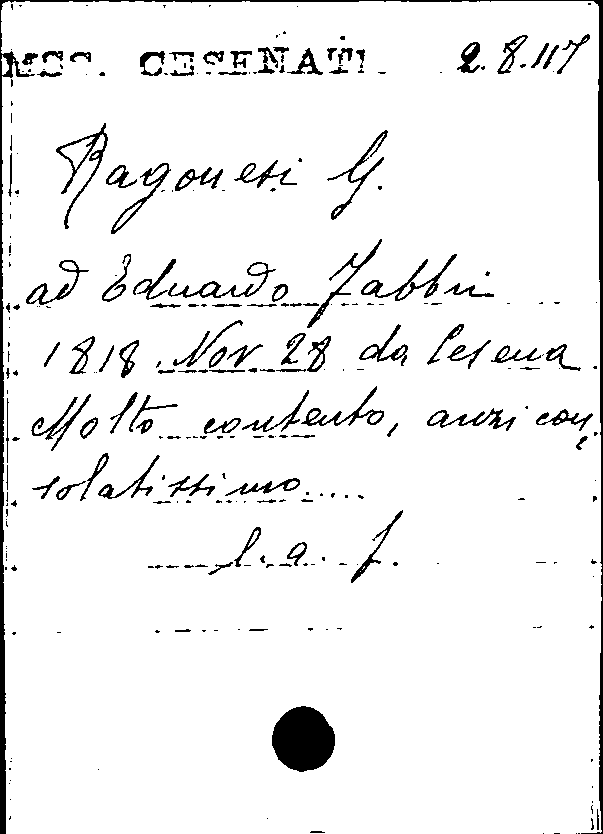 MSS. CESENATI 2.8.117
Ragonesi G.
ad Eduardo Fabbri
1818. Nov 28 da Cesena
Molto contento, anzi con,
solatissimo....
l. a. f.